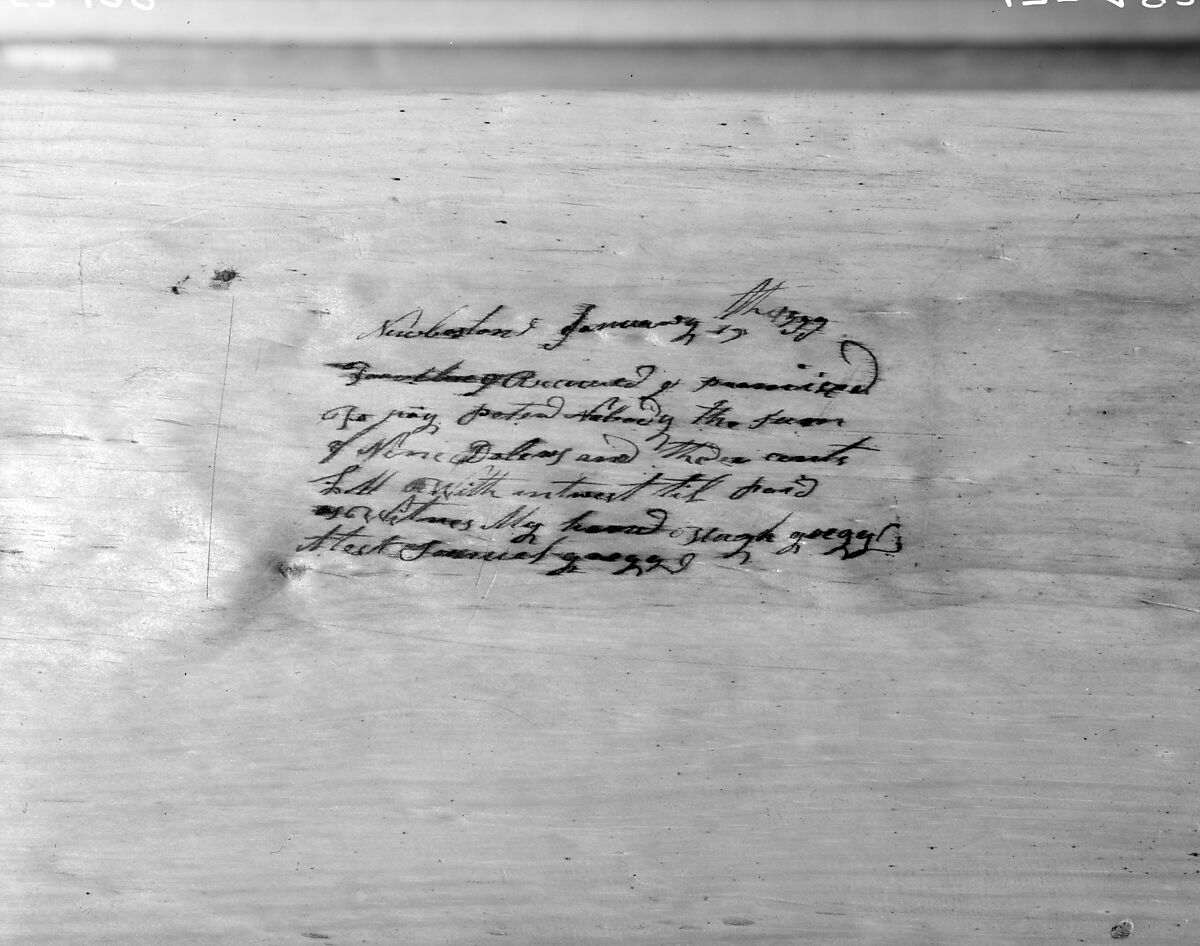 Newboston January 17 the 1799
For valueg Receiued y promised
To pay peterd Nobody the sum
of Nine Dolers and Three cents
Lell With intrest til paid
as Witnes My hand Hugh gregg
Atest Samuel gregg